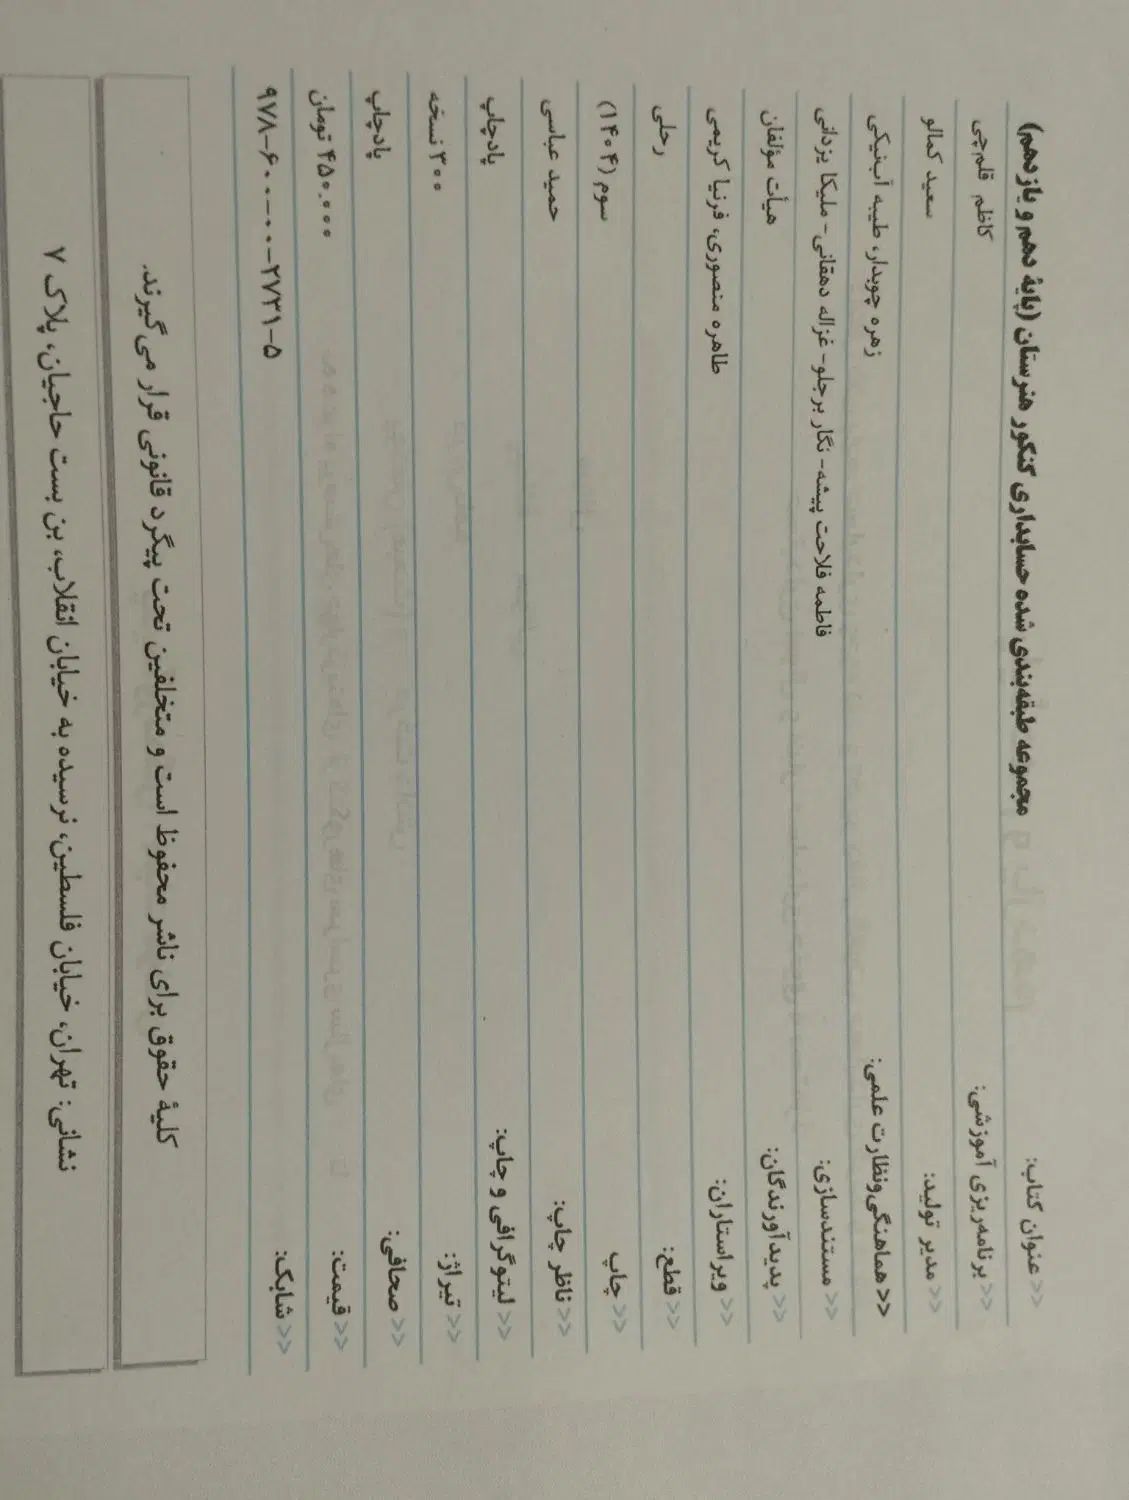 << عنوان کتاب: مجموعه طبقه‌بندی شده حسابداری کنکور هنرستان (پایهٔ دهم و یازدهم)
<< برنامه‌ریزی آموزشی: کاظم قلم‌چی
<< مدیر تولید: سعید کمالو
<< هماهنگی ونظارت علمی: زهره چوبدار، طیبه آب‌نیکی
<< مستندسازی: فاطمه فلاحت پیشه- نگار برجلو- غزاله دهقانی- ملیکا یزدانی
<< پدیدآورندگان: هیأت مؤلفان
<< ویراستاران: طاهره منصوری، فرنیا کریمی
<< قطع: رحلی
<< چاپ سوم (۱۴۰۴)
<< ناظر چاپ: حمید عباسی
<< لیتوگرافی و چاپ: یادچاپ
<< تیراژ: ۳۰۰ نسخه
<< صحافی: یادچاپ
<< قیمت: ۴۵۰.۰۰۰ تومان
<< شابک: ۹۷۸-۶۰۰-۰۰-۲۷۳۱-۵
کلیهٔ حقوق برای ناشر محفوظ است و متخلفین تحت پیگرد قانونی قرار می‌گیرند.
نشانی: تهران، خیابان فلسطین، نرسیده به خیابان انقلاب، بن بست حاجیان، پلاک ۷